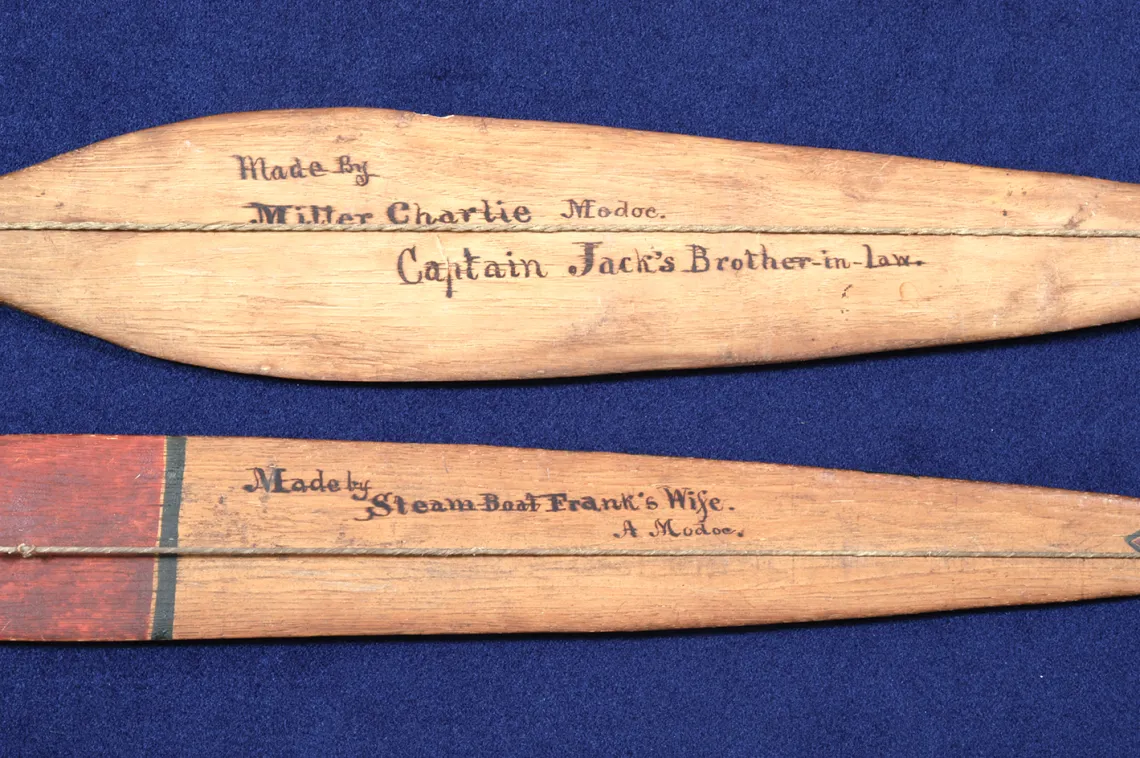 Made By
Miller Charlie Modoc.
Captain Jack's Brother-in-law.
Made by
Steam Boat Frank's Wife.
A Modoc.